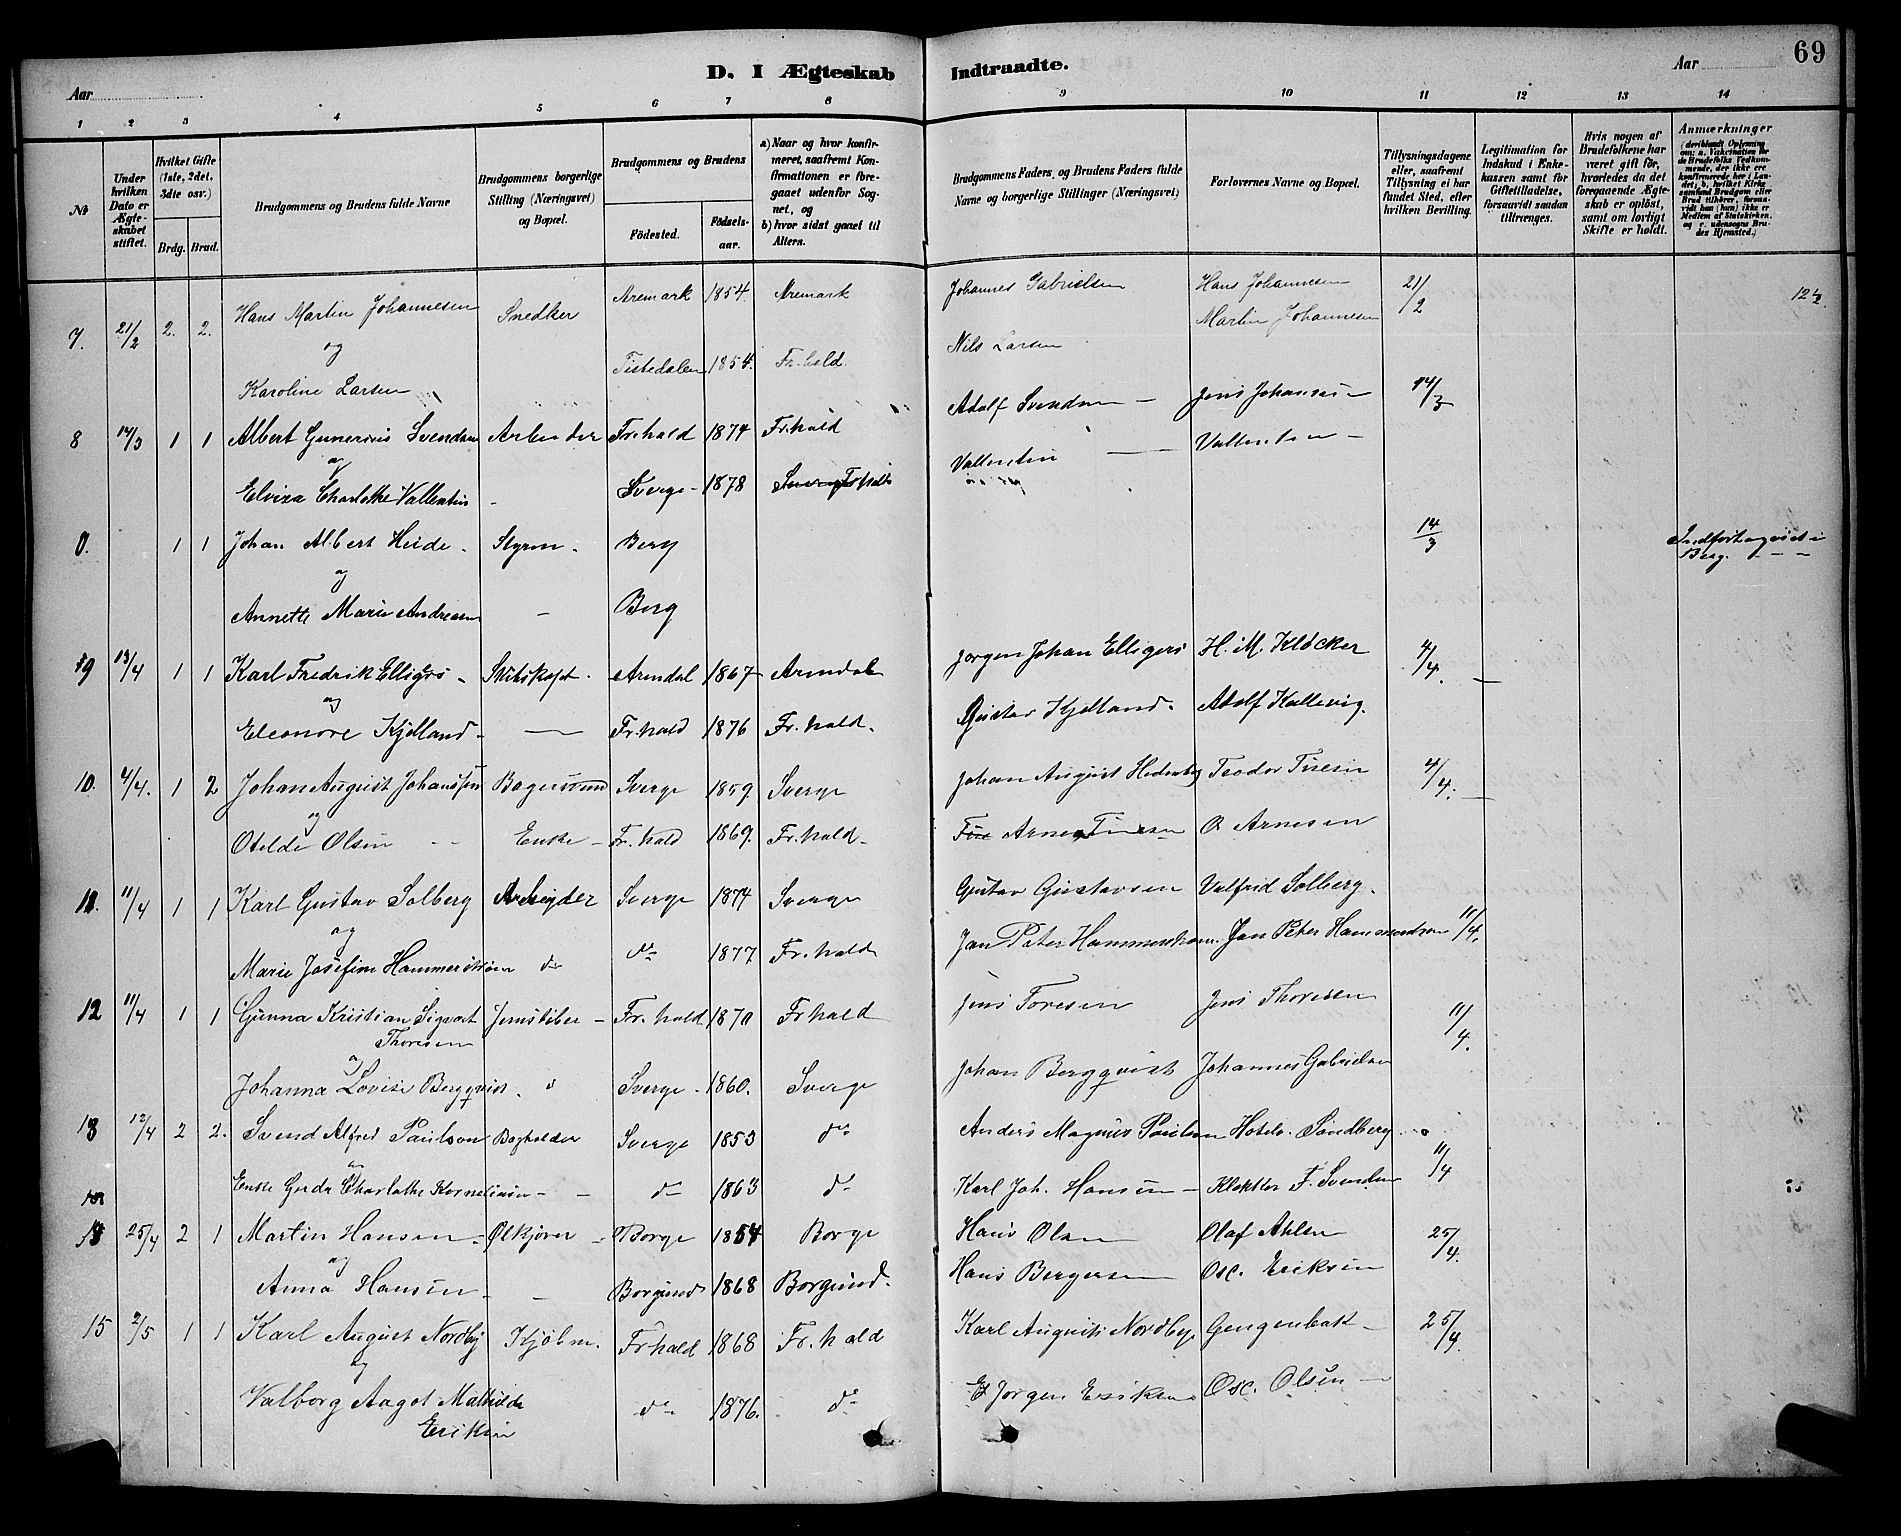 69
D. I Ægteskab Indtraadte.
Aar
Aar
1 2 3 4 5 6 7 8 9 10 11 12 13 14
No
Under hvilken Dato er Ægteskabet stiftet.
Hvilket Gifte (1ste, 2det, 3die osv.)
Brdg. Brud.
Brudgommens og Brudens fulde Navne
Brudgommens borgerlige Stilling (Næringsvei) og Bopæl.
Brudgommens og Brudens
Födested.
Födselsaar.
a) Naar og hvor konfirmeret, saafremt Konfirmationen er foregaaet udenfor Sognet, og
b) hvor sidst gaaet til Alters.
Brudgommens Faders og Brudens Faders fulde Navne og borgerlige Stillinger (Næringsvei)
Forlovernes Navne og Bopæl.
Tillysningsdagene eller, saafremt Tillysning ei har fundet Sted, efter hvilken Bevilling.
Legitimation for Indskud i Enkekassen samt for Giftetilladelse, forsaavidt saadan tiltrænges.
Hvis nogen af Brudefolkene har været gift för, hvorledes da det foregaaende Ægteskab er oplöst, samt om lovligt Skifte er holdt.
Anmærkninger
(deriblandt Oplysning om: a. Vakcination for de Brudefolks Vedkommende, der ikke ere konfirmerede her i Landet; b. hvilket Kirkesamfund Brudgom eller Brud tilhører, forsaavidt han (hun) ikke er Medlem af Statskirken, og c. udensogns Brudes Hjemsted.)
7. 21/2 2. 2. Hans Martin Johannesen Snedker Aremark 1854. Aremark Johannes Gabrielsen Hans Johannesen 21/2
og Martin Johannesen
Karoline Larsen Tistedalen 1854. Fr.hald. Nils Larsen
8 14/3 1 1 Albert Gunerius Svendsen Arbeider Fr.hald 1874 Fr.hald Adolf Svendsen Jens Johansen 14/3
og
Elvira Charlotte Vallentin Sverge 1878 Fr.hald Vallentin Vallentin
0. 1 1 Johan Albert Heide Styrm. Berg 14/3 Berg.
og
Annette Marie Andreasen Berg
9 13/4 1 1 Karl Fredrik Elligers Skibskapt. Arendal 1867 Arendal Jørgen Johan Elligers H. M. Kløcker 4/4.
og
Eleonore Kjelland Fr.hald 1876 Fr.hald. Gustav Kjelland. Adolf Kallevig.
10. 4/4. 1 2 Johan August Johanssen Bagersvend Sverge 1859. Sverge Johan August Hedenberg Teodor Turesen 4/4.
og
Otelde Olsen Enke Fr.hald 1869. Fr.hald Arne O Arnesen
11. 11/4 1 1 Karl Gustav Solberg Arbeider Sverge 1874 Sverge Gustav Gustavsen Valfrid Solberg.
og
Marie Josefine Hammerstrøm do do 1877 Fr.hald Jan Peter Hammerstrøm Jan Peter 11/4.
12 11/4 1 1 Gunna Kristian Sigvart Thoresen Jernstøber Fr.hald 1870 Frhald Jens Toresen Jens Thoresen 11/4.
og
Johanna Lovise Bergqvist. Sverge 1860. Sverge Johan Bergqvist Johannes Gabrielsen
13 12/4 2 2. Svend Alfred Paulson Bogholder Sverge 1853 do Anders Magnus Paulson Hotelv. Sandberg
og 11/4
Enke Gerda Charlotte Korneliusen do 1863 do Karl Joh. Hansen Klokker F. Svendsen
25/4 2 1 Martin Hansen Ølkjører Borge 1854 Borge Hans Olsen Olaf Ahlsen 25/4.
og
Anna Hansen Borgund 1868 Borgund. Hans Bergersen Osc. Eriksen
15 2/5 1 1 Karl August Nordby Kjøbm. Frhald 1868 Fr.hald Karl August Nordbye Gengenbak 25/4.
og
Valborg Aagot Mathilde Eriksen do 1876. do Jørgen Eriksen Osc. Olsen